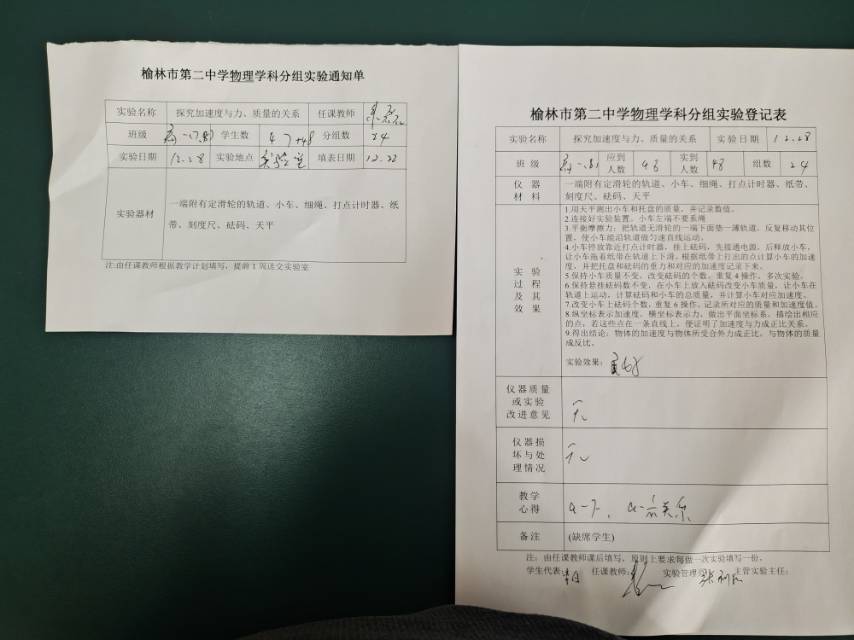 榆林市第二中学物理学科分组实验通知单
实验名称 探究加速度与力、质量的关系 任课教师
班级 学生数 47+48 分组数 24
实验日期 12.28 实验地点 实验室 填表日期 12.22
实验器材 一端附有定滑轮的轨道、小车、细绳、打点计时器、纸
带、刻度尺、砝码、天平
注:由任课教师根据教学计划填写，提前1周送交实验室
榆林市第二中学物理学科分组实验登记表
实验名称 探究加速度与力、质量的关系 实验日期 12.28
班级 应到人数 48 实到人数 48 组数 24
仪器材料 一端附有定滑轮的轨道、小车、细绳、打点计时器、纸带、
刻度尺、砝码、天平
实验过程及其效果
1.用天平测出小车和托盘的质量，并记录数值。
2.连接好实验装置，小车左端不要系绳
3.平衡摩擦力：把轨道无滑轮的一端下面垫一薄轨道，反复移动其位
置，使小车能沿轨道做匀速直线运动。
4.小车停放靠近打点计时器，挂上砝码，先接通电源，后释放小车，
让小车拖着纸带在轨道上下滑。根据纸带上打出的点计算小车的加速
度，并把托盘和砝码的重力和对应的加速度记录下来。
5.保持小车质量不变，改变砝码的个数，重复4操作，多次实验。
6.保持悬挂砝码数不变，在小车上放入砝码改变小车质量，让小车在
轨道上运动，计算砝码和小车的总质量，并计算小车对应加速度。
7.改变小车上砝码个数，重复6操作，记录所对应的质量和加速度值。
8.纵坐标表示加速度，横坐标表示力，做出平面坐标系，描绘出相应
的点，若这些点在一条直线上，便证明了加速度与力成正比关系。
9.得出结论，物体的加速度与物体所受合外力成正比，与物体的质量
成反比。
实验效果： 良好
仪器质量或实验改进意见 无
仪器损坏与处理情况 无
教学心得 a-F、a-1/m关系
备注 (缺席学生)
注：由任课教师课后填写，原则上要求每做一次实验填写一份。
学生代表: 任课教师: 实验管理员: 主管实验主任: